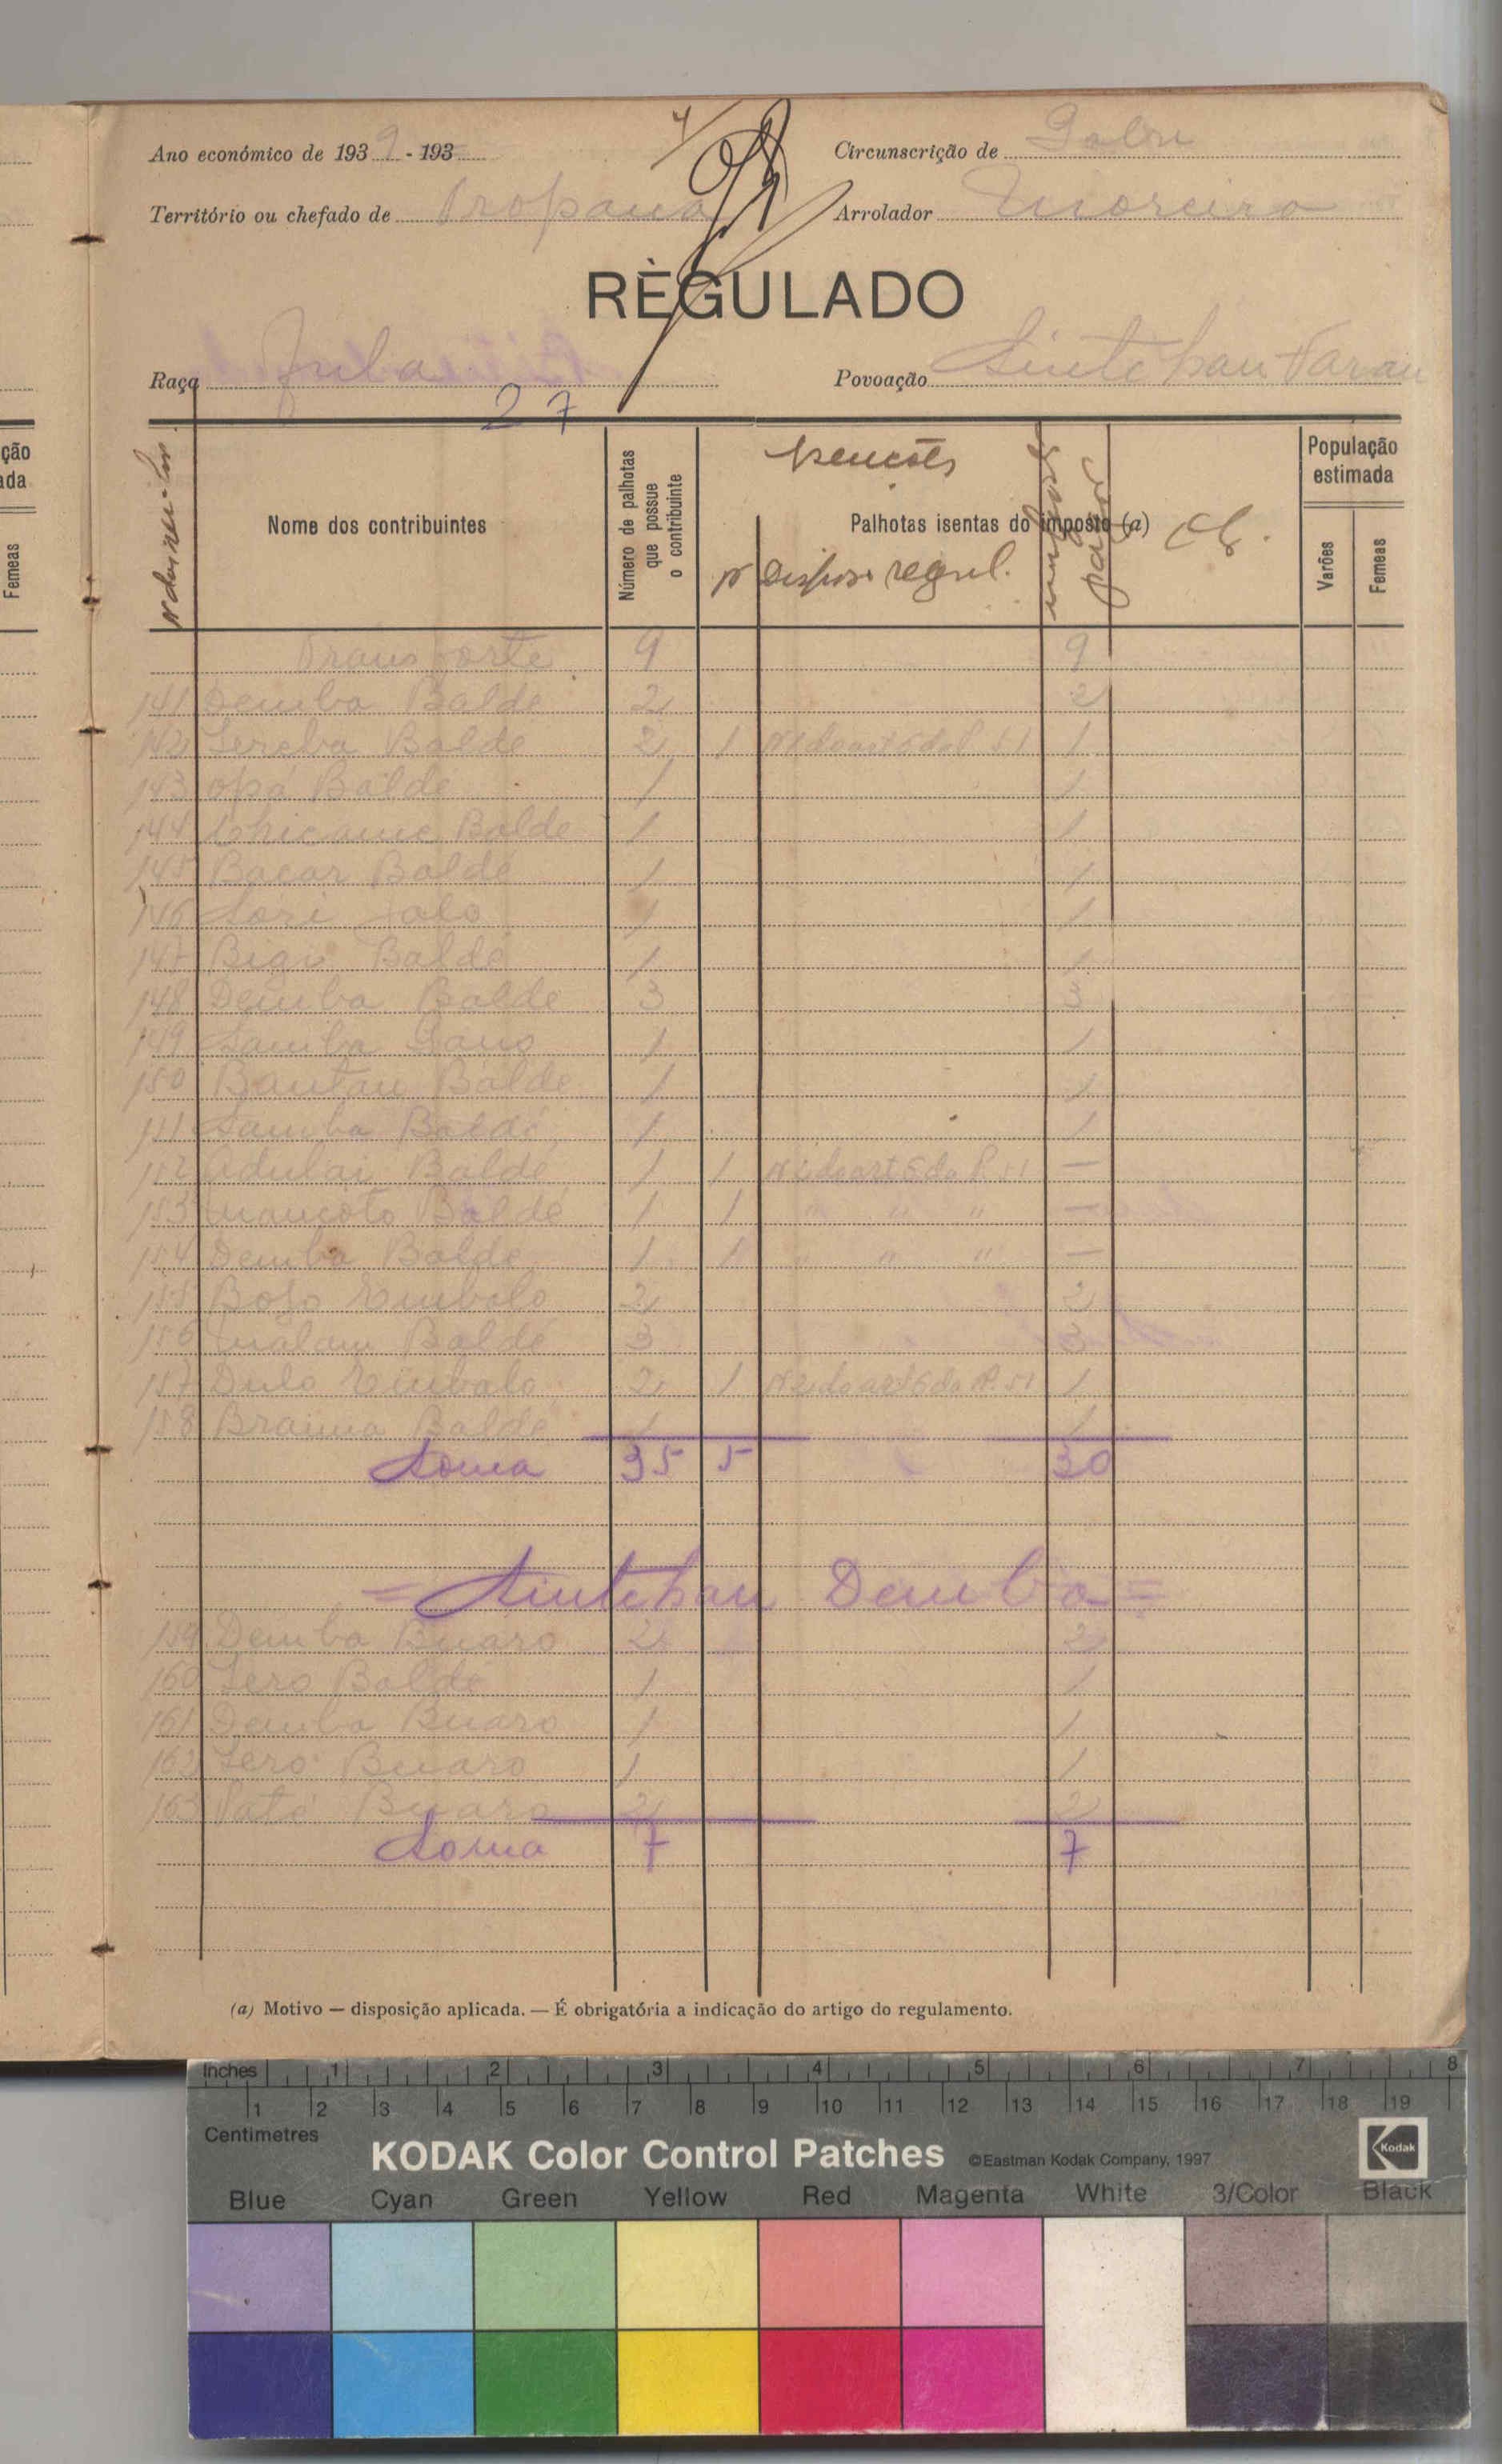 Ano económico de 1939 - 193
Circunscrição de Gabu
Território ou chefado de Propana
Arrolador Moreira
RÈGULADO
Raça Fula
Povoação Sintchan Farau
27
Nome dos contribuintes
Número de palhotas que possue o contribuinte
Isenções
Palhotas isentas do imposto (a)
População estimada
Varões
Femeas
Transporte 9 9
141 Demba Baldé 2 2
142 Sereba Baldé 2 1 Nº 2 do art 6 do R. 51 1
143 Opá Baldé 1 1
144 Baldé 1 1
145 Bacar Baldé 1 1
146 Sori Jaló 1 1
147 Bigi Baldé 1 1
148 Demba Baldé 3 3
149 Samba Sano 1 1
150 Bantau Baldé 1 1
151 Samba Baldé 1 1
152 Adulai Baldé 1 1 Nº 2 do art 6 do R. 51 —
153 Mancoto Baldé 1 1 " " " —
154 Demba Baldé 1 1 " " " —
155 Bojo Embaló 2 2
156 Malam Baldé 3 3
157 Dulo Embaló 2 1 Nº 2 do art 6 do R. 51 1
158 Braima Baldé 1 1
Soma 35 5 30
= Sintchan Demba =
159 Demba Buaro 2 2
160 Sero Baldé 1 1
161 Demba Buaro 1 1
162 Sero Buaro 1 1
163 Paté Buaro 2 2
Soma 7 7
(a) Motivo — disposição aplicada. — É obrigatória a indicação do artigo do regulamento.
ção
ada
Femeas
Inches 1 2 3 4 5 6 7 8
1 2 3 4 5 6 7 8 9 10 11 12 13 14 15 16 17 18 19
Centimetres
KODAK Color Control Patches ©Eastman Kodak Company, 1997 Kodak
Blue Cyan Green Yellow Red Magenta White 3/Color Black